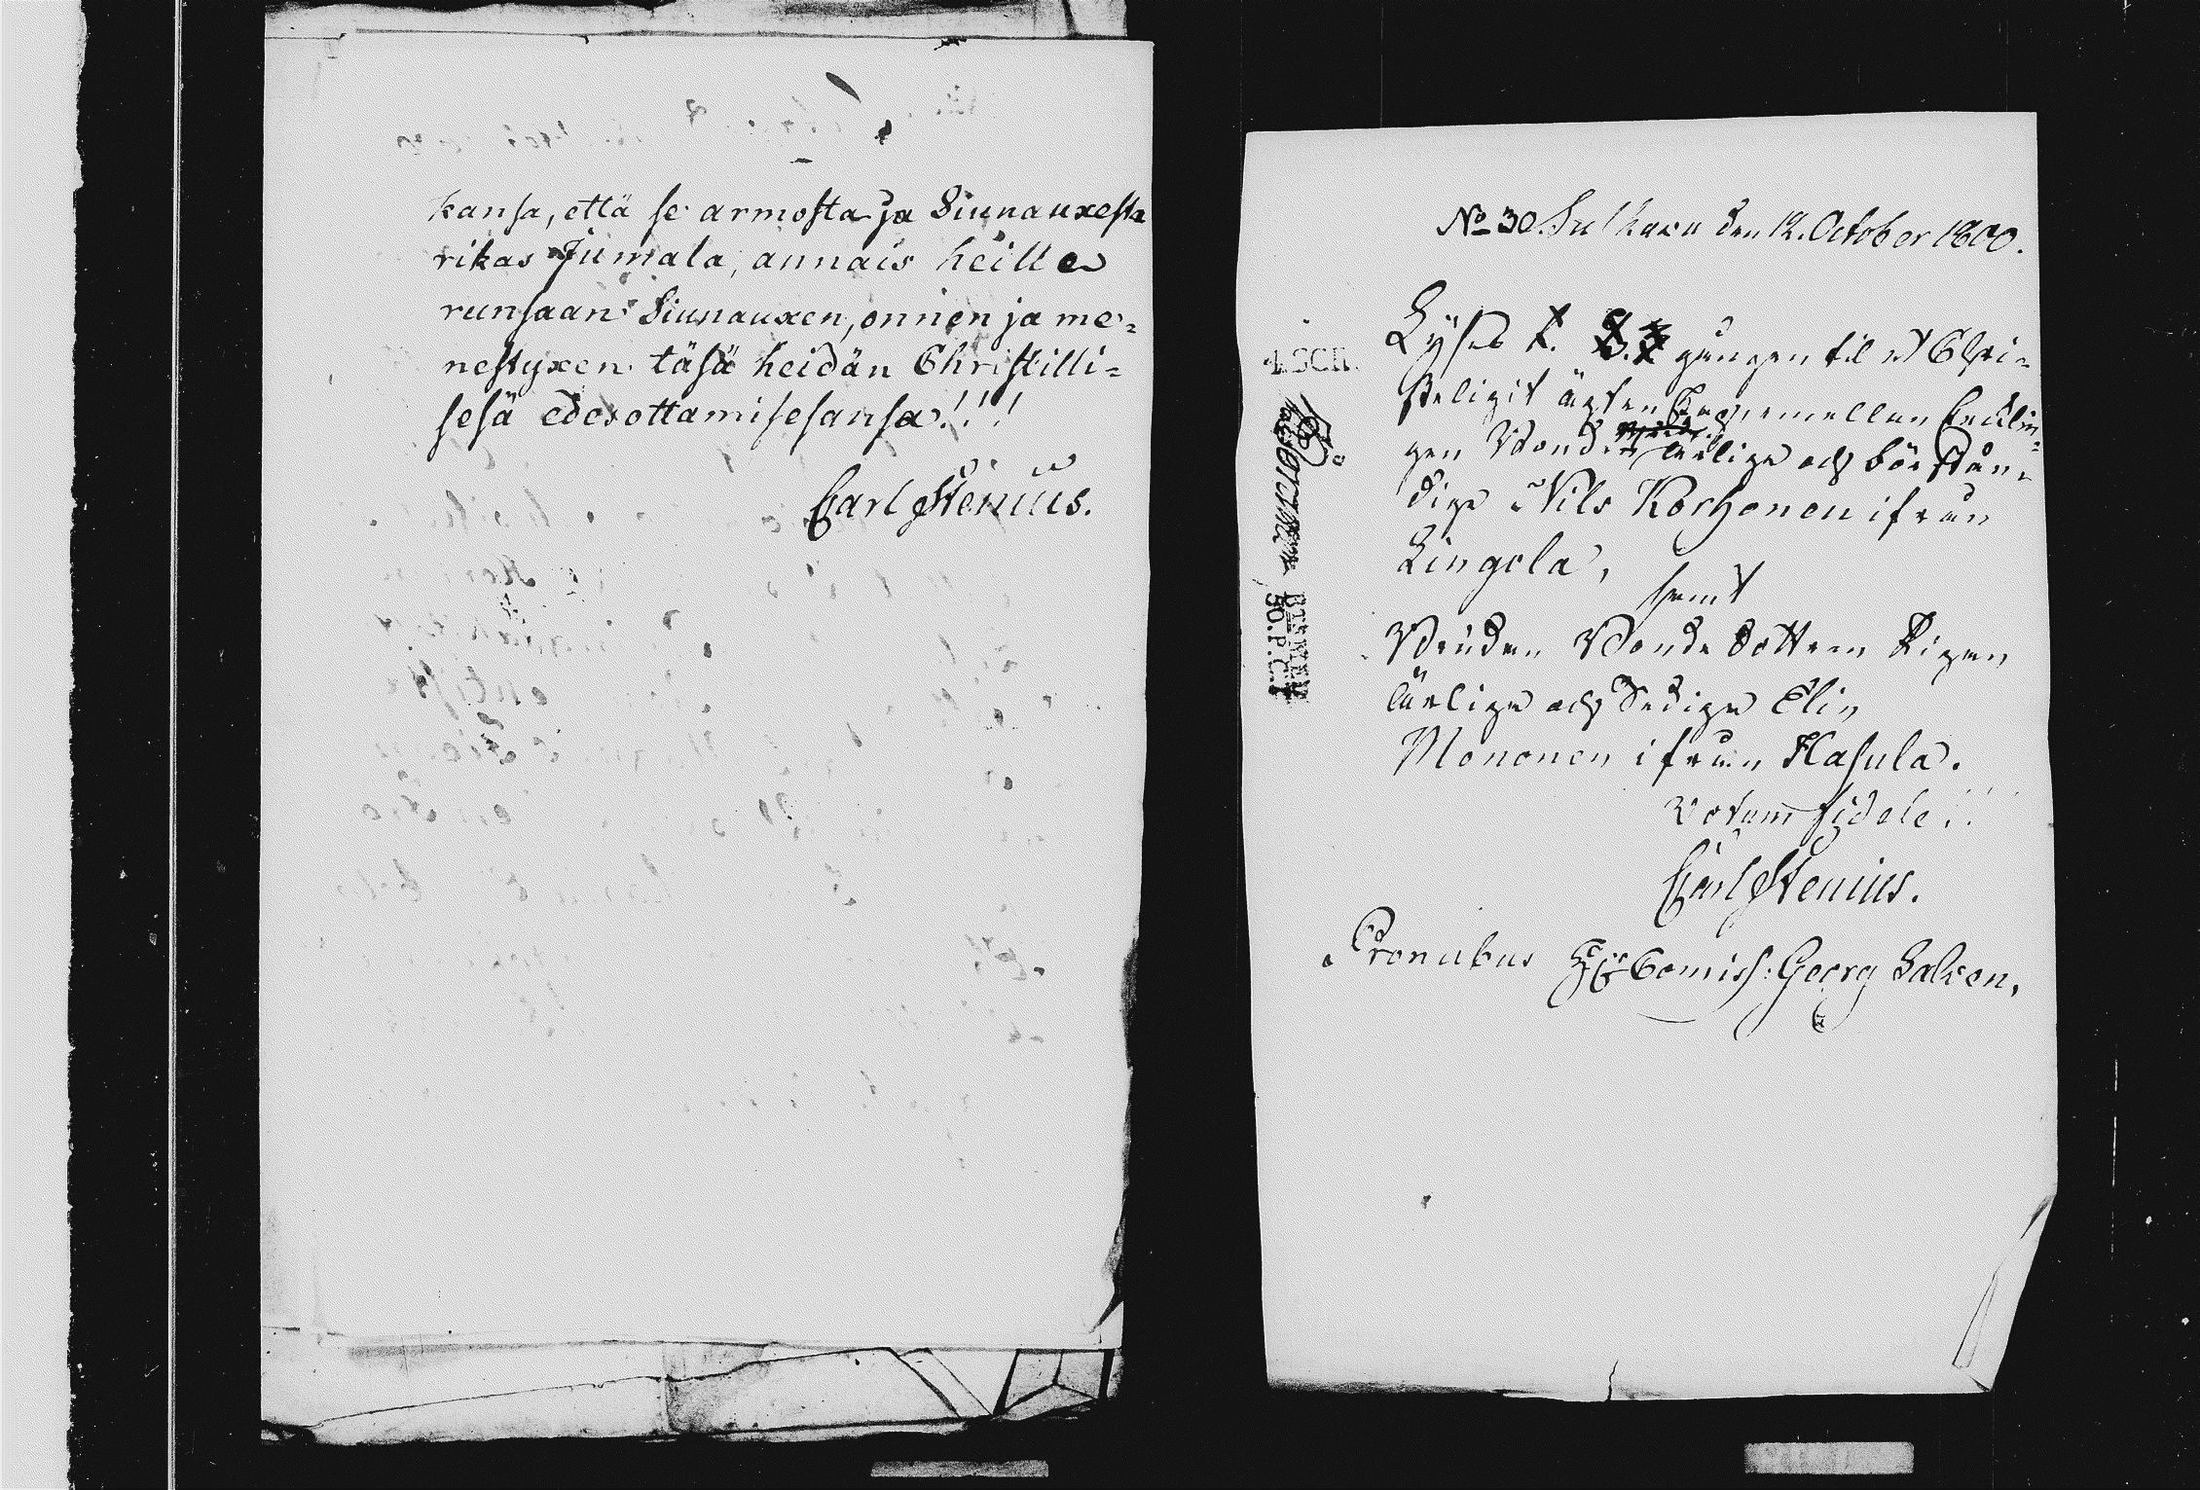 kansa, että se armosta ja Siunauxesta
rikas Jumala, annais heille
runsaan Siunauxen, onnen ja me=
nestyxen täsä heidän Christilli=
sesä edesottamisesansa!!!
Carl Stenius.
No 30. Sulkava den 12. October 1800.
Lyses 1. gången til et Chri=
steligit ägtenskap emellan
gen Bonden ärlige och beskäm=
dige Nils Korhonen ifrån
Lingola,
samt
Bonde dottren Pigan
ärliga och Sediga Elin
Mononen ifrån Kasula.
votum fidele!!
Carl Stenius.
Pronubus Comiss: Georg Salven.
4. SCH.